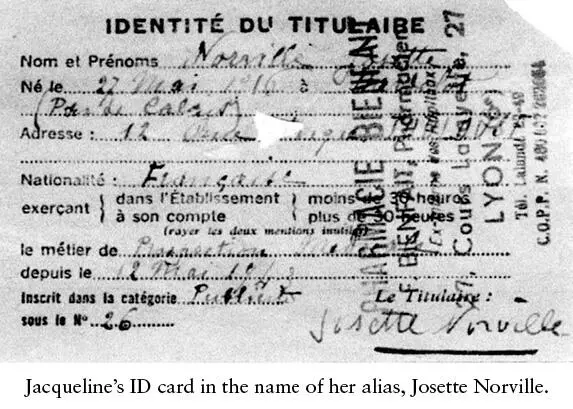 IDENTITÉ DU TITULAIRE
Nom et Prénoms Norville Josette
Né le 27 Mai 1916 à
(Pas de Calais)
Adresse : 12 Rue
Nationalité : Française
exerçant { dans l'Établissement } moins de 30 heures
à son compte } plus de 30 heures
(rayer les deux mentions inutiles)
le métier de
depuis le 12 Mai
Inscrit dans la catégorie
sous le Nº 26
Le Titulaire :
Josette Norville
PHARMACIE BIENFAIT
BIENFAIT, Pharmacien
Ex-Interne des Hôpitaux
27, Cours Lafayette, 27
LYON
Tél. Lalande
Jacqueline's ID card in the name of her alias, Josette Norville.